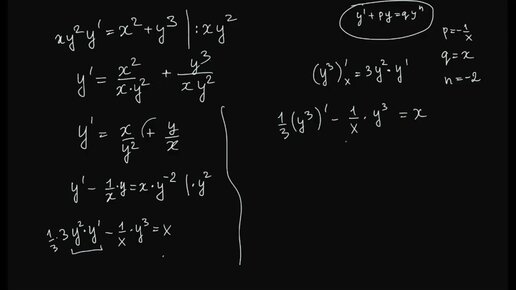 xy²y' = x² + y³ | : xy²
y' = x²/(x·y²) + y³/(xy²)
y' = x/y² + y/x
y' - 1/x · y = x · y⁻² | · y²
1/3 · 3y² · y' - 1/x · y³ = x
y' + py = qyⁿ
p = -1/x
q = x
n = -2
(y³)'ₓ = 3y² · y'
1/3 (y³)' - 1/x · y³ = x